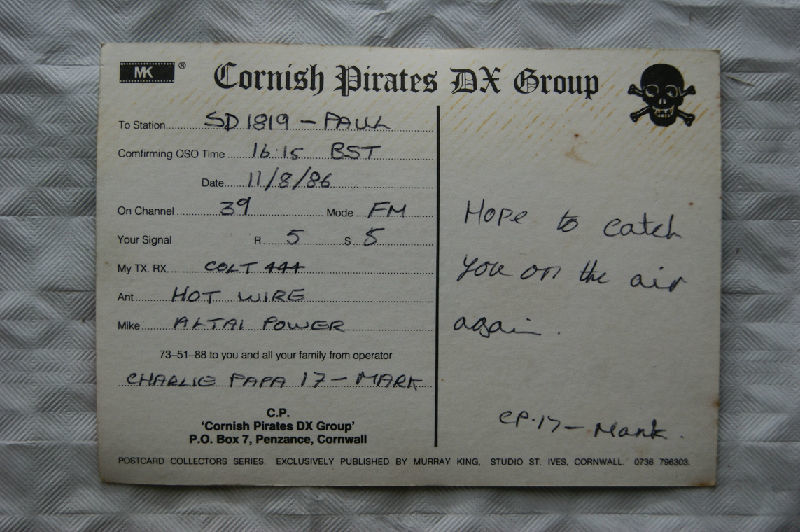 MK ®
Cornish Pirates DX Group
To Station SD1819 - PAUL
Comfirming QSO Time 16:15 BST
Date 11/8/86
On Channel 39 Mode FM
Your Signal R 5 S 5
My TX. RX. COLT 444
Ant HOT WIRE
Mike ALTAI POWER
73-51-88 to you and all your family from operator
CHARLIE PAPA 17 - MARK
C.P.
'Cornish Pirates DX Group'
P.O. Box 7, Penzance, Cornwall
Hope to catch
you on the air
again.
CP.17 - Mark.
POSTCARD COLLECTORS SERIES. EXCLUSIVELY PUBLISHED BY MURRAY KING, STUDIO ST. IVES, CORNWALL. 0736 796303.